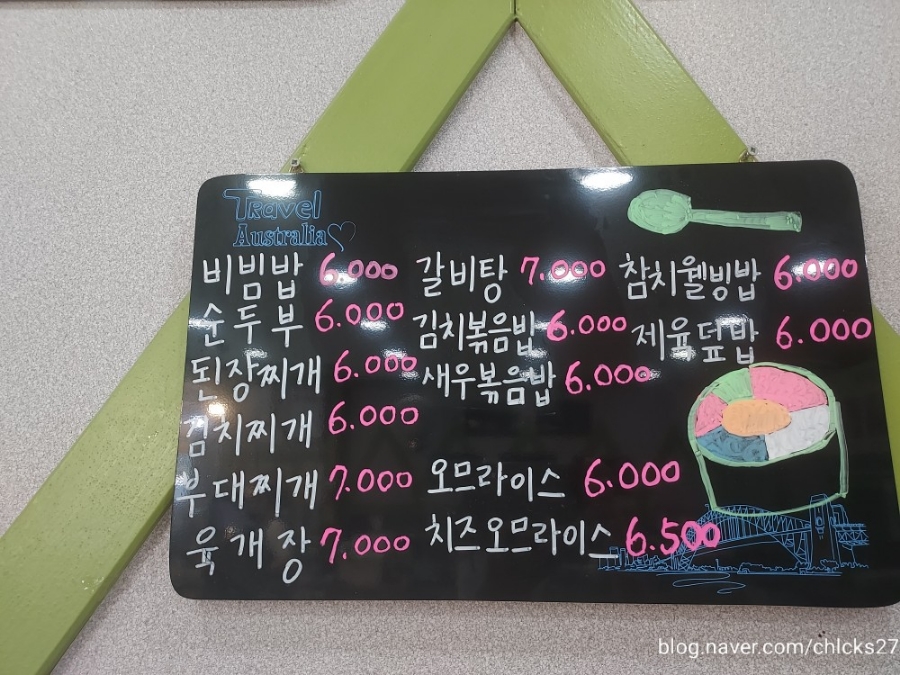 Travel
Australia
비빔밥 6.000
순두부 6.000
된장찌개 6.000
김치찌개 6.000
부대찌개 7.000
육개장 7.000
갈비탕 7.000
김치볶음밥 6.000
새우볶음밥 6.000
오므라이스 6.000
치즈오므라이스 6.500
참치웰빙밥 6.000
제육덮밥 6.000
blog.naver.com/chlcks27